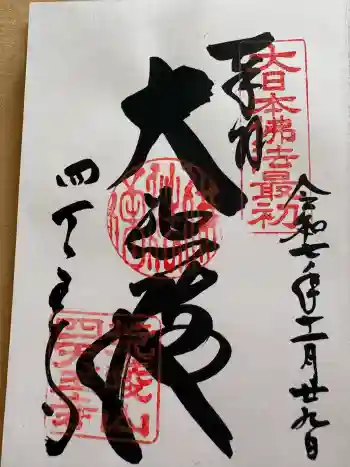 奉拝
大日本佛法最初
令和七年十二月廿九日
大悲殿
四天王寺
荒陵山
四天王寺